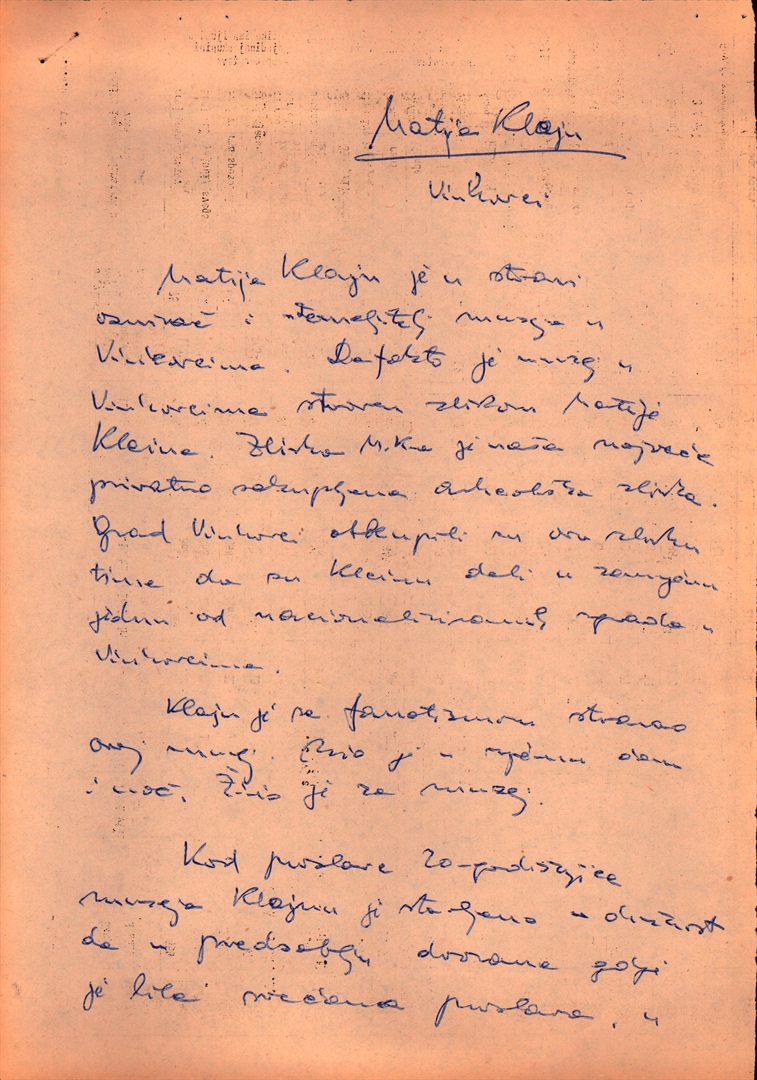 Matija Klajn
Vinkovci
Matija Klajn je u stvari
osnivač i utemeljitelj muzeja u
Vinkovcima. Defakto je muzej u
Vinkovcima stvoren zbirkom Matije
Kleina. Zbirka M.K-a je naša najveća
privatno sakupljena arheološka zbirka.
Grad Vinkovci otkupili su ovu zbirku
time da su Kleinu dali u zamjenu
jednu od nacionaliziranih zgrada u
Vinkovcima.
Klajn je sa fanatizmom stvarao
ovaj muzej. Bio je u njemu dan
i noć. Živio je za muzej.
Kod proslave 20-godišnjice
muzeja Klajnu je stavljeno u dužnost
da u predsoblju dvorane gdje
je bila svečana proslava, u